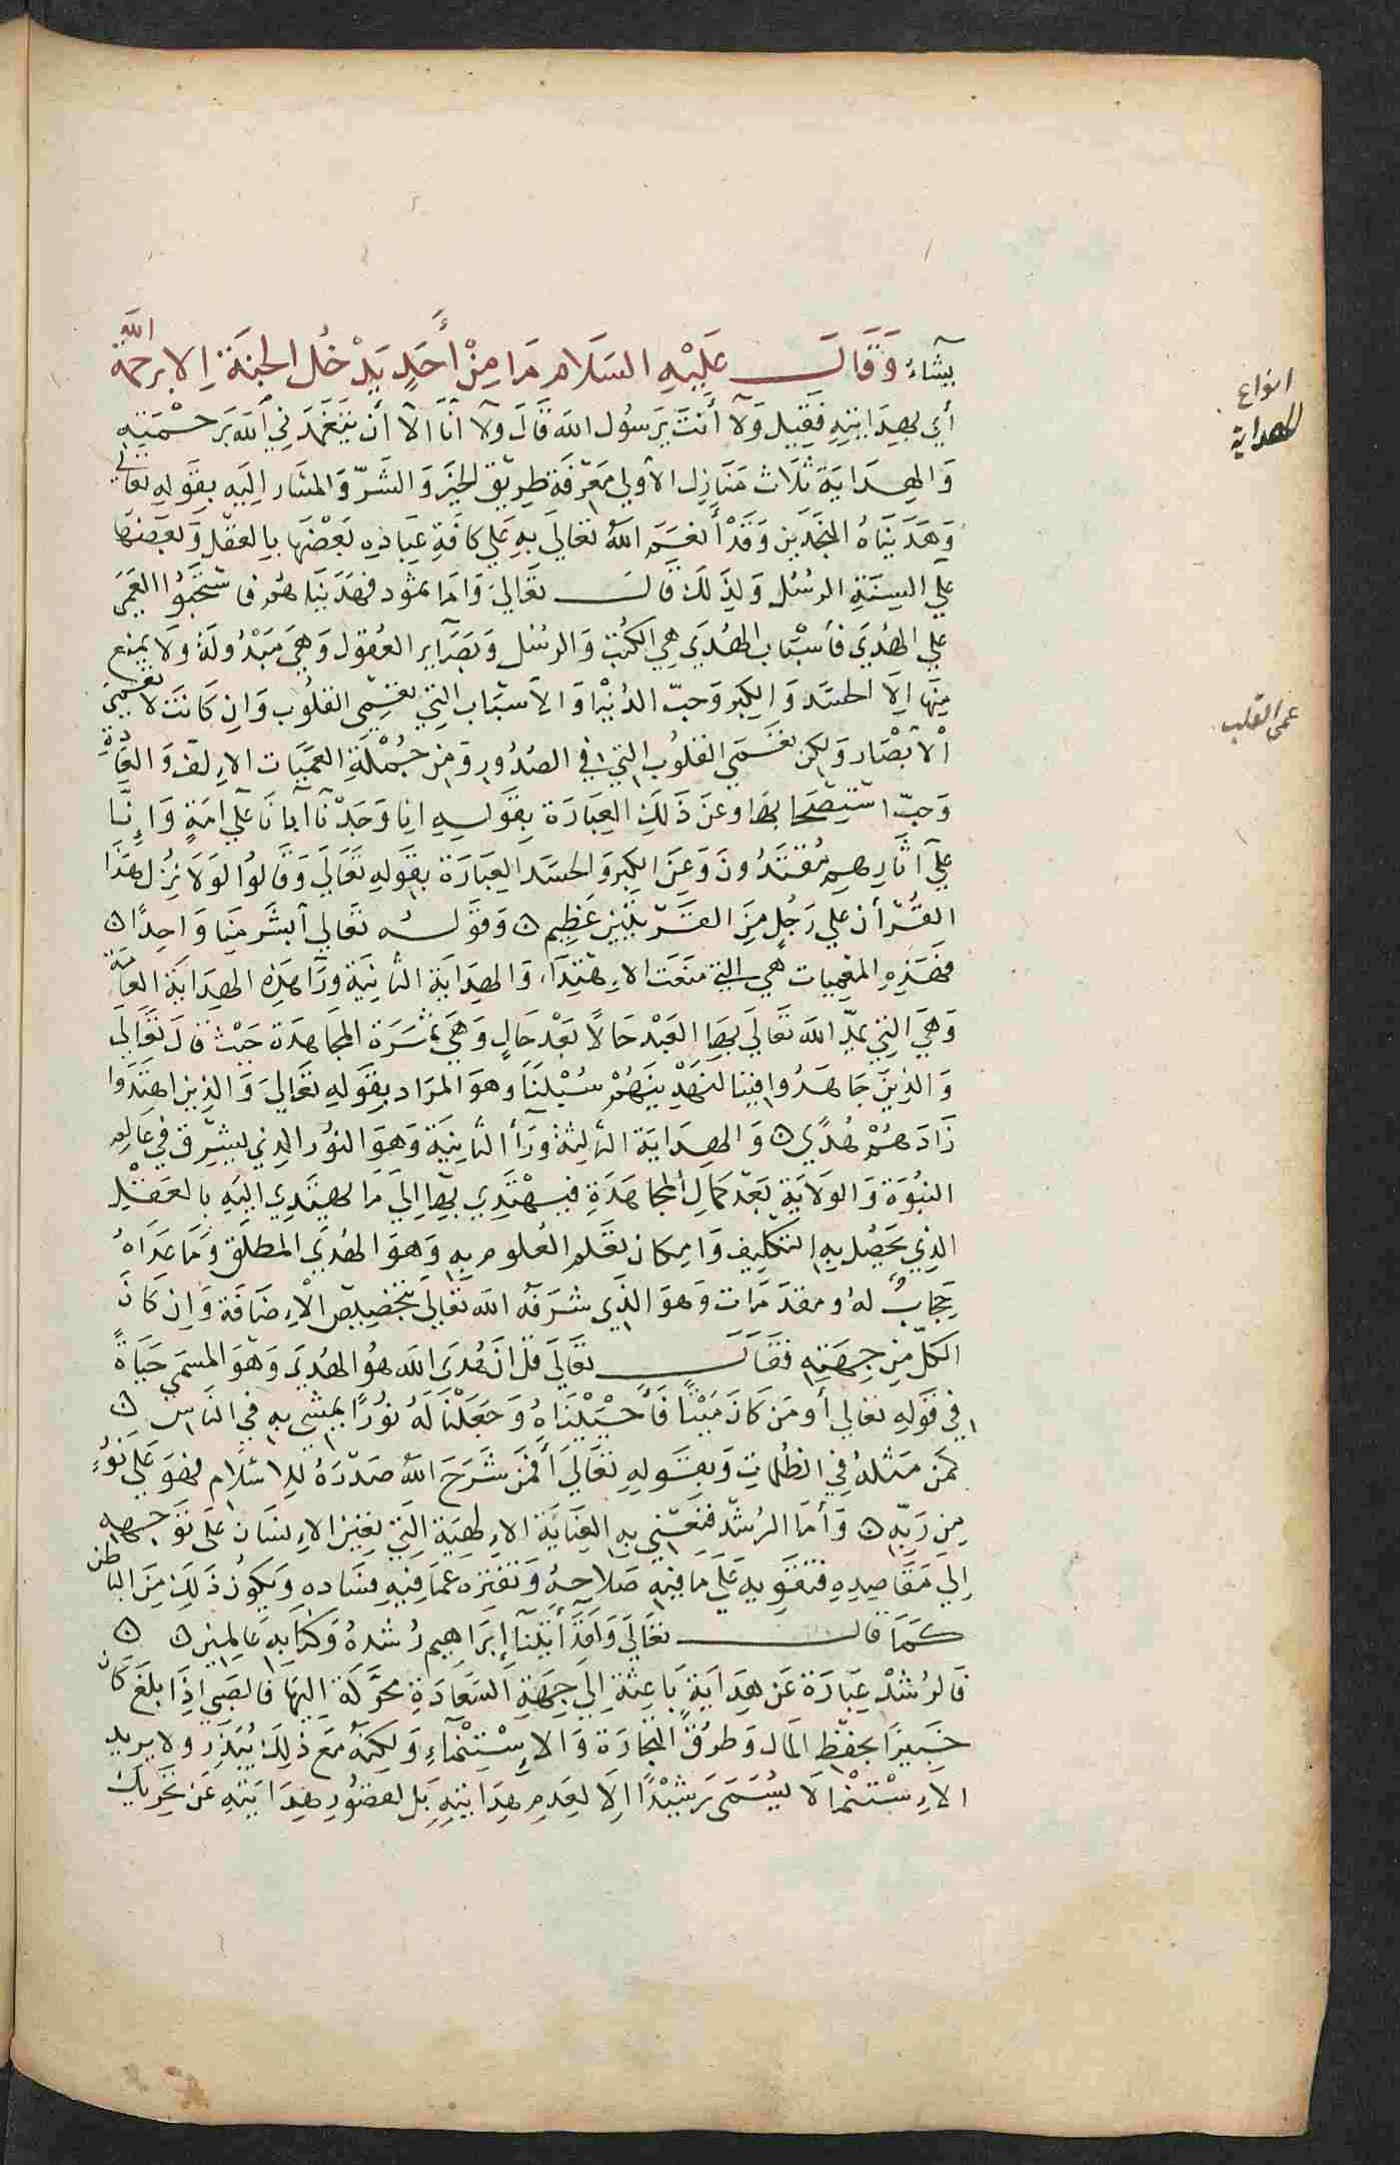 يشاء وقال عليه السلام ما من أحد يدخل الجنة الا برحمة الله
أي بهدايته فقيل ولا أنت يرسول الله قال ولا أنا الا أن يتغمدني الله برحمته
والهداية ثلاث منازل الأولى معرفة طريق الخير والشر والمشار اليه بقوله تعالى
وهديناه النجدين وقد أنعم الله تعالى به على كافة عباده بعضها بالعقل وبعضها
على السنة الرسل ولذلك قال تعالى واما ثمود فهديناهم فاستحبوا العمى
على الهدى فأسباب الهدى هي الكتب والرسل وبصراير العقول وهي مبذولة ولا يمنع
منها الا الحسد والكبر وحب الدنيا والأسباب التي تعمى القلوب وان كانت لا تعمى
الأبصار ولكن تعمى القلوب التي في الصدور ومن جملة العميات الإلف والعادة
وحب استصحابها وعن ذلك العبارة بقوله انا وجدنا آبانا على امة وإنا
على آثارهم مقتدون وعن الكبر والحسد العبارة بقوله تعالى وقالوا لولا نزل هذا
القرأن على رجل من القريتين عظيم ۞ وقوله تعالى أبشر منا واحدا ۞
فهذه المعميات هي التي منعت الإهتداء والهداية الثانية ورآ هذه الهداية العامة
وهي التي يمد الله تعالى بها العبد حالا بعد حال وهي ثمرة المجاهدة حيث قال تعالى
والذين جاهدوا فينا لنهدينهم سبلنا وهو المراد بقوله تعالى والذين اهتدوا
زادهم هدى ۞ والهداية الثالثة ورآ الثانية وهو النور الذي يشرق في عالم
النبوة والولاية بعد كمال المجاهدة فيهتدي بها إلى ما لا يهتدي اليه بالعقل
الذي يحصل به التكليف وامكان تعلم العلوم به وهو الهدى المطلق وما عداه
حجاب له ومقدمات وهو الذي شرفه الله تعالى بتخصيص الإضافة وان كان
الكل من جهته فقال تعالى قل ان هدى الله هو الهدى وهو المسمى حياة
في قوله تعالى أو من كان ميتا فأحييناه وجعلنا له نورا يمشي به في الناس ۞
كمن مثله في الظلمات وبقوله تعالى أفمن شرح الله صدره للاسلام فهو على نور
من ربه ۞ وأما الرشد فنعني به العناية الإلهية التي تعين الإنسان على توجهه
إلى مقاصده فتقويه على ما فيه صلاحه وتفتره عما فيه فساده ويكون ذلك من الباطن
كما قال تعالى ولقد أتينا إبراهيم رشده وكنا به عالمين ۞ ۞
فالرشد عبارة عن هداية باعثة إلى جهة السعادة محركة اليها فالصبي اذا بلغ كان
خبيرا بحفظ المال وطرق التجارة والإستنماء ولكنه مع ذلك يبذر ولا يريد
الإستنما لا يسمى رشيدا الا لعدم هدايته بل لقصور هدايته عن تحريك
انواع
الهداية
عمى القلب